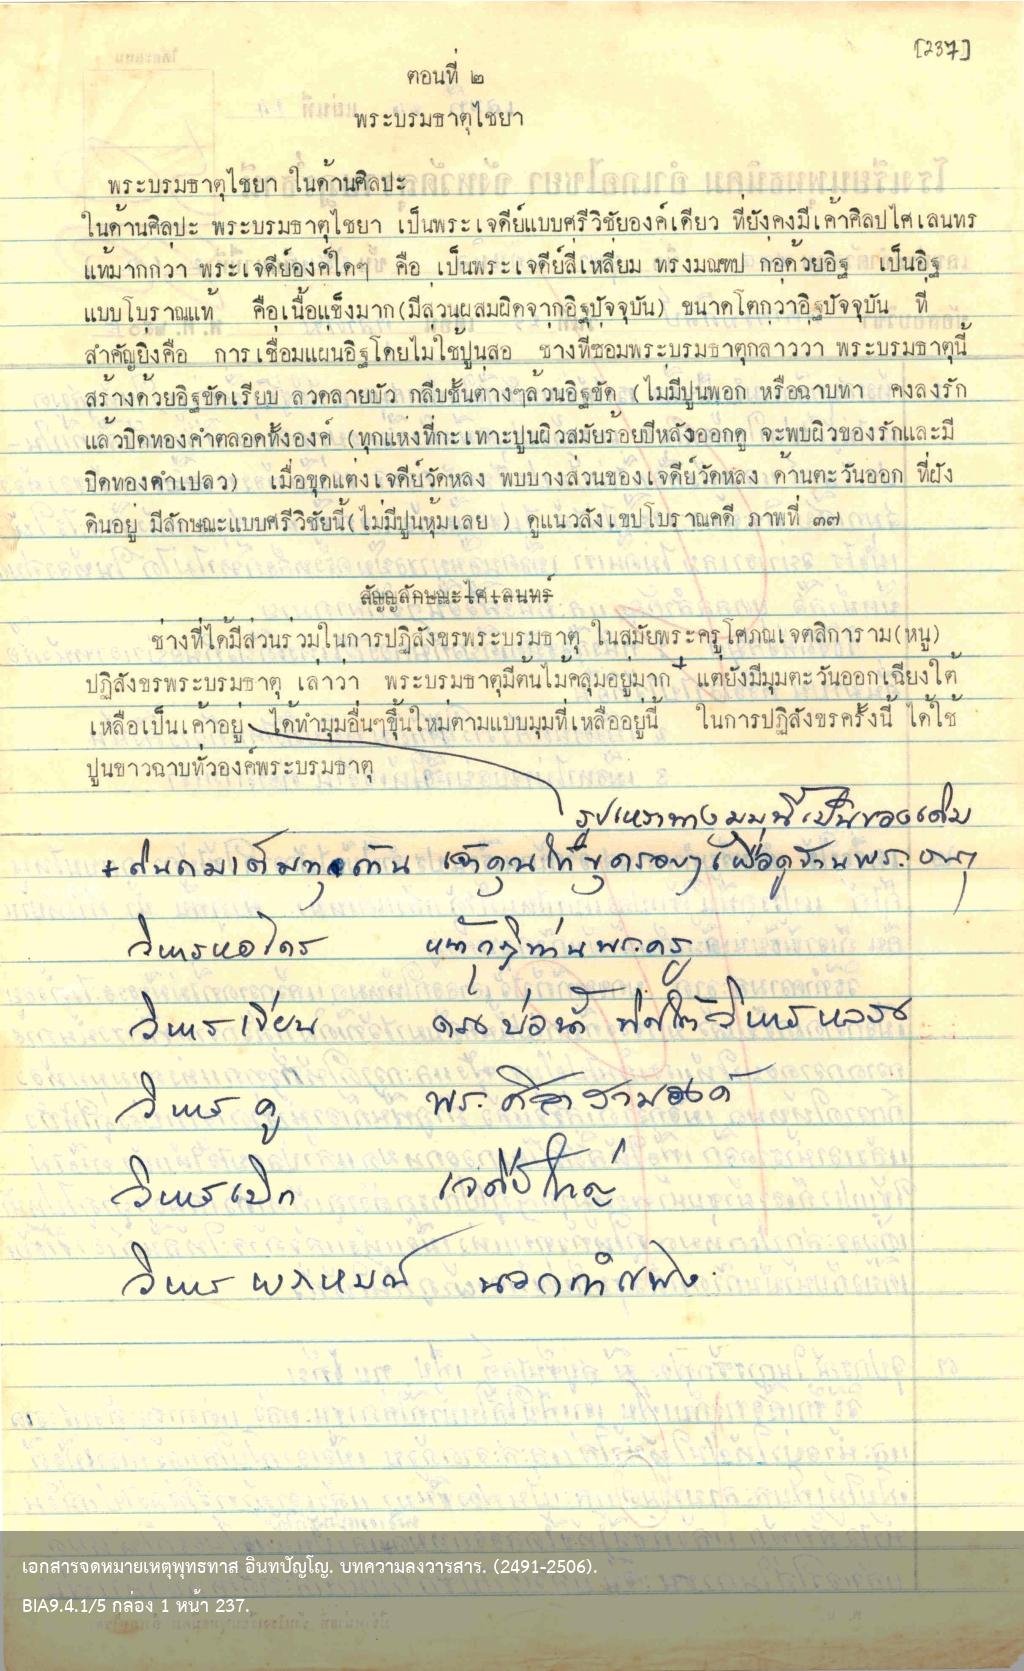 [237]
ตอนที่ ๒
พระบรมธาตุไชยา
พระบรมธาตุไชยา ในด้านศิลปะ
ในด้านศิลปะ พระบรมธาตุไชยา เป็นพระเจดีย์แบบศรีวิชัยองค์เดียว ที่ยังคงมีเค้าศิลปไศเลนทร
แท้มากกว่า พระเจดีย์องค์ใดๆ คือ เป็นพระเจดีย์สี่เหลี่ยม ทรงมณฑป ก่อด้วยอิฐ เป็นอิฐ
แบบโบราณแท้ คือเนื้อแข็งมาก(มีส่วนผสมผิดจากอิฐปัจจุบัน) ขนาดโตกว่าอิฐปัจจุบัน ที่
สำคัญยิ่งคือ การเชื่อมแผ่นอิฐโดยไม่ใช้ปูนสอ ช่างที่ซ่อมพระบรมธาตุกล่าวว่า พระบรมธาตุนี้
สร้างด้วยอิฐขัดเรียบ ลวดลายบัว กลีบชั้นต่างๆล้วนอิฐขัด (ไม่มีปูนพอก หรือฉาบทา คงลงรัก
แล้วปิดทองคำตลอดทั้งองค์ (ทุกแห่งที่กะเทาะปูนผิวสมัยร้อยปีหลังออกดู จะพบผิวของรักและมี
ปิดทองคำเปลว) เมื่อขุดแต่งเจดีย์วัดหลง พบบางส่วนของเจดีย์วัดหลง ด้านตะวันออก ที่ฝัง
ดินอยู่ มีลักษณะแบบศรีวิชัยนี้(ไม่มีปูนหุ้มเลย ) ดูแนวสังเขปโบราณคดี ภาพที่ ๓๗
สัญญลักษณะไศเลนทร์
ช่างที่ได้มีส่วนร่วมในการปฏิสังขรพระบรมธาตุ ในสมัยพระครูโศภณเจตสิการาม(หนู)
ปฏิสังขรพระบรมธาตุ เล่าว่า พระบรมธาตุมีต้นไม้คลุมอยู่มาก + แต่ยังมีมุมตะวันออกเฉียงใต้
เหลือเป็นเค้าอยู่ ได้ทำมุมอื่นๆขึ้นใหม่ตามแบบมุมที่เหลืออยู่นี้ ในการปฏิสังขรครั้งนี้ ได้ใช้
ปูนขาวฉาบทั่วองค์พระบรมธาตุ
รูปเหราทางมุมนี้เป็นของเดิม
+ ดินถมเต็มทุกด้าน เจ้าคุณให้ขุดรอบๆ เพื่อดูฐานพระธาตุ
วิหารหอไตร
วิหารเขียน ตรงบ่อน้ำ ทิศใต้วิหารหลวง
วิหารคู่ พระศิลาสามองค์
วิหารเปิก เจดีย์ใหญ่
วิหารพราหมณ์ นอกกำแพง
เอกสารจดหมายเหตุพุทธทาส อินทปัญโญ. บทความลงวารสาร. (2491-2506).
BIA9.4.1/5 กล่อง 1 หน้า 237.